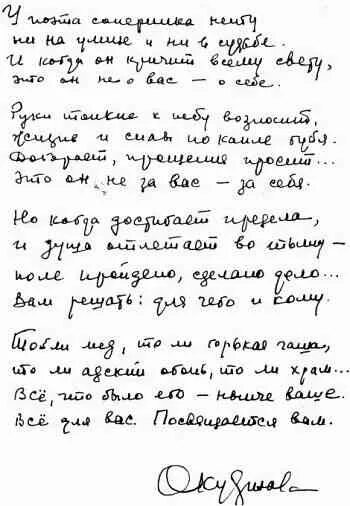 У поэта соперника нету
ни на улице и ни в судьбе.
И когда он кричит всему свету,
это он не о вас — о себе.
Руки тонкие к небу возносит,
жизнь и силы по капле губя.
Догорает, прощения просит...
Это он не за вас — за себя.
Но когда достигает предела,
и душа отлетает во тьму —
поле пройдено, сделано дело...
Вам решать: для чего и кому.
То ли мед, то ли горькая чаша,
то ли адский огонь, то ли храм...
Всё, что было его — нынче ваше.
Всё для вас. Посвящается вам.
Окуджава